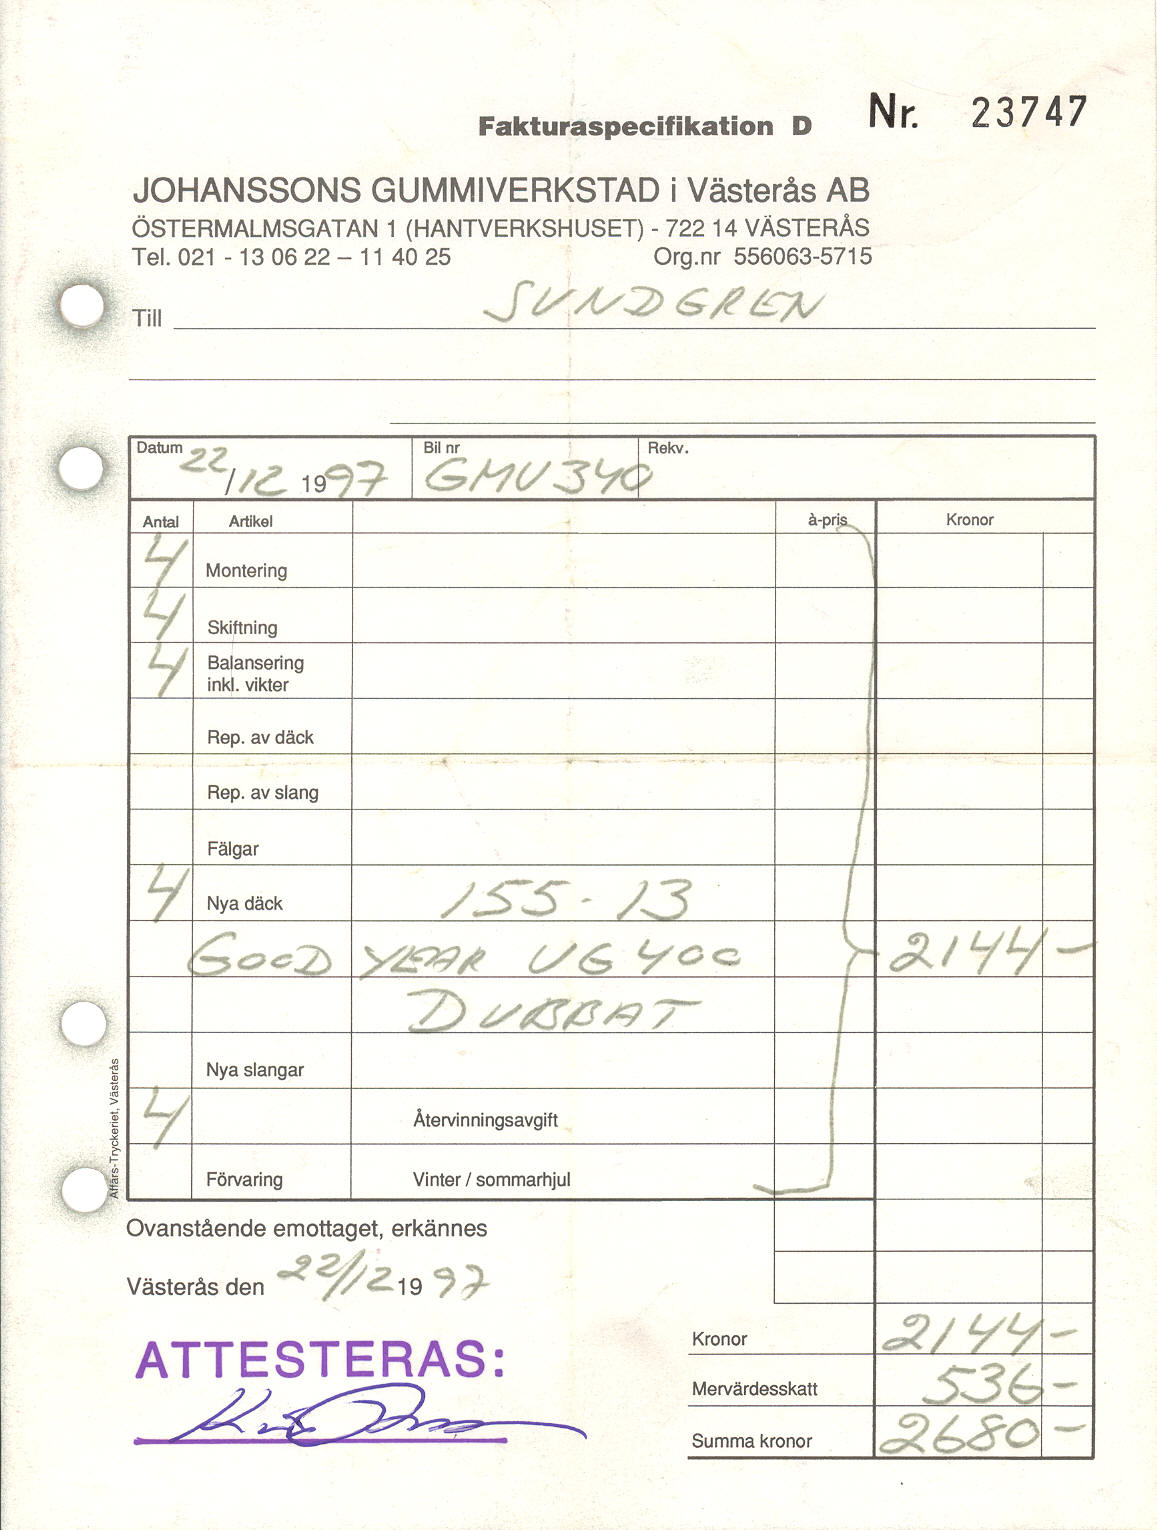 Fakturaspecifikation D Nr. 23747
JOHANSSONS GUMMIVERKSTAD i Västerås AB
ÖSTERMALMSGATAN 1 (HANTVERKSHUSET) - 722 14 VÄSTERÅS
Tel. 021 - 13 06 22 – 11 40 25 Org.nr 556063-5715
Till SUNDGREN
Datum 22/12 1997 Bil nr GMU 340 Rekv.
Antal Artikel à-pris Kronor
4 Montering
4 Skiftning
4 Balansering
inkl. vikter
Rep. av däck
Rep. av slang
Fälgar
4 Nya däck 155-13
GOOD YEAR UG 400 2144-
DUBBAT
Nya slangar
4 Återvinningsavgift
Förvaring Vinter / sommarhjul
Affärs-Tryckeriet, Västerås
Ovanstående emottaget, erkännes
Västerås den 22/12 1997
ATTESTERAS:
Kronor 2144-
Mervärdesskatt 536-
Summa kronor 2680-